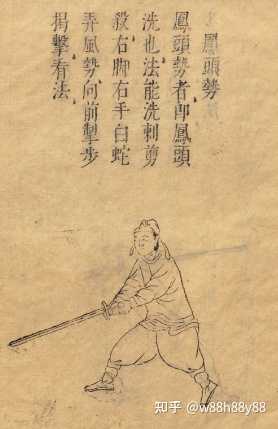 鳳頭勢
鳳頭勢者即鳳頭
洗也法能洗刺剪
殺右脚右手白蛇
弄風勢向前掣步
揭擊看法
知乎 @w88h88y88